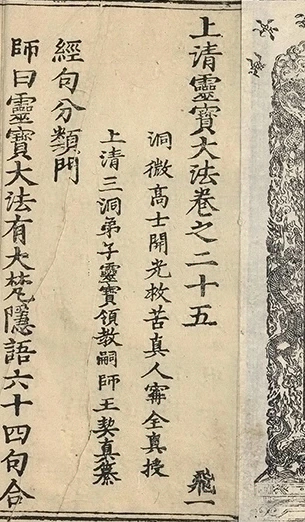 上清靈寶大法卷之二十五
飛一
洞微高士開光救苦真人甯全真授
上清三洞弟子靈寶領教嗣師王契真纂
經句分類門
師曰靈寶大法有大梵隱語六十四句合